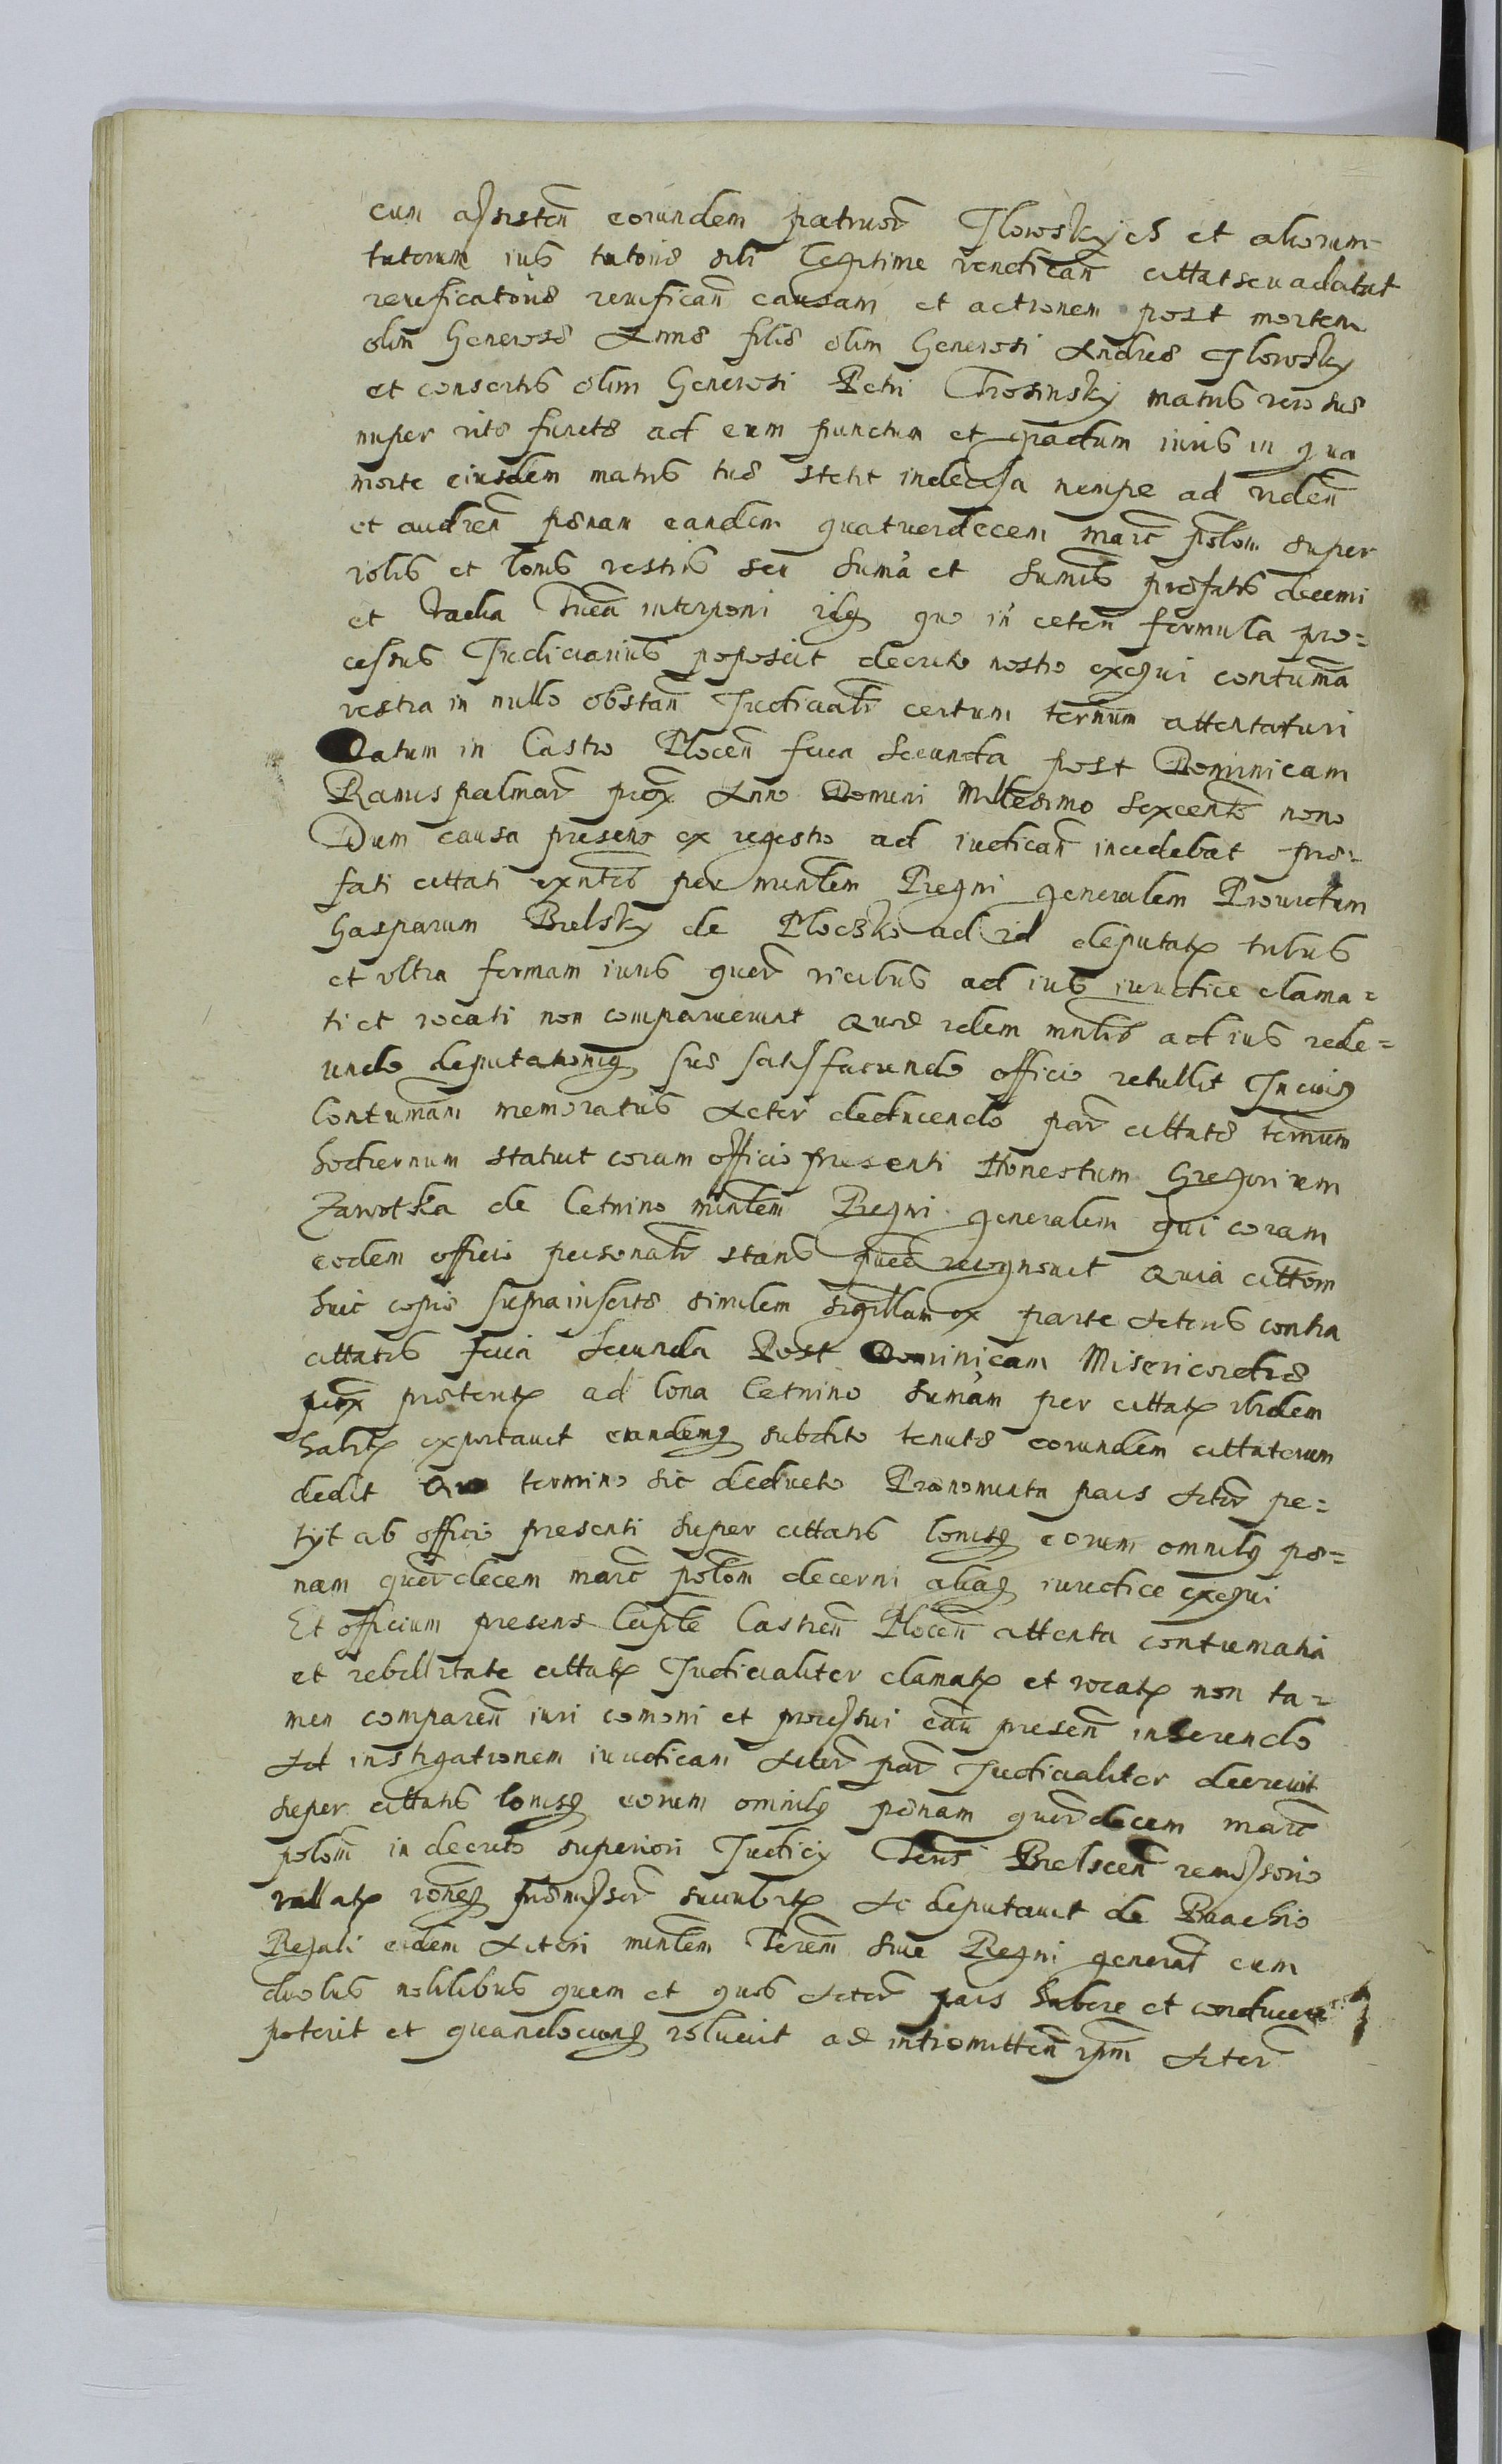 cum assisten eorundem patruor Ilowskych et aliorum
tutorum ius tutorie sibi legitime vendican cittat seu adcitat
reuificatorie reuifican causam et actionem post mortem
olim Generose Anne filie olim Generosi Andree Ilowsky
et consortis olim Generosi Petri Trosinsky matris vero sue
nuper vite functe ad eum punctum et gradum iuris in qua
morte eiusdem matris tue stetit indecisa nempe ad viden
et audien penam eandem quatuordecem marc polon super
vobis et bonis vestris seu suma et sumis prefatis decerni
et vadia interponi idq quo in ceten formula pro=
cessus Iudiciarius poposcit decreto nostro exequi contuma
vestra in nullo obstan Iudicialr certum terminum attentaturi
Datum in Castro Plocen feria secunda post Dominicam
Ramispalmar prox Anno Domini Millesimo sexcente nono
Dum causa presens ex regestro ad iudican incedebat pre=
fati cittati exntes per minlem Regni generalem Prouidum
Gasparum Bielsky de Ploczko ad id deputat tribus
et vltra formam iuris quer vicibus ad ius iuridice clama=
ti et vocati non comparuerunt Quos idem minlis ad ius rede=
undo deputationiq sue satisfaciendo officio retullit In cuius
Contumam memoratus Actor deducendo par cittate terminum
hodiernum statuit coram officio presenti Honestum Gregorium
Zawotka de Cetnino minlem Regni generalem qui coram
eodem officio personalr stans recognouit Quia cittem
huic copie suprainserte similem sigillam ex parte Actoris contra
cittatis feria secunda Post Dominicam Misericordie
prox preterit ad bona Cetnino sumam per cittat ibidem
habit exportauit eandemq subdito tenute eorundem cittatorum
dedit Quo termino sic deducto Prenominta pars Actor pe=
tyt ab officio presenti super cittatis bonisq eorum omnibq pe=
nam quer decem marc polon decerni aliaq iuridice exequi
Et officium presens Capte Castren Plocen attenta contumatia
et rebellitate cittat Iudicialiter clamat et vocat non ta=
men comparen iuri comoni et processui cau presen inherendo
Ad instigationem iuridicam Actor par Iudicialiter decreuit
super cittatis bonisq eorum omnibq penam quer decem marc
polon in decreto superiori Iudicy Tris Bielscen remissorio
vallat roneq premissor succubit Ac deputauit de Brachio
Regali eidem Actori minlem Terrem siue Regni general cum
duobus nobilibus quem et quos Actor pars habere et conducere
poterit et quandocunq voluerit ad intromitten ipm Actor